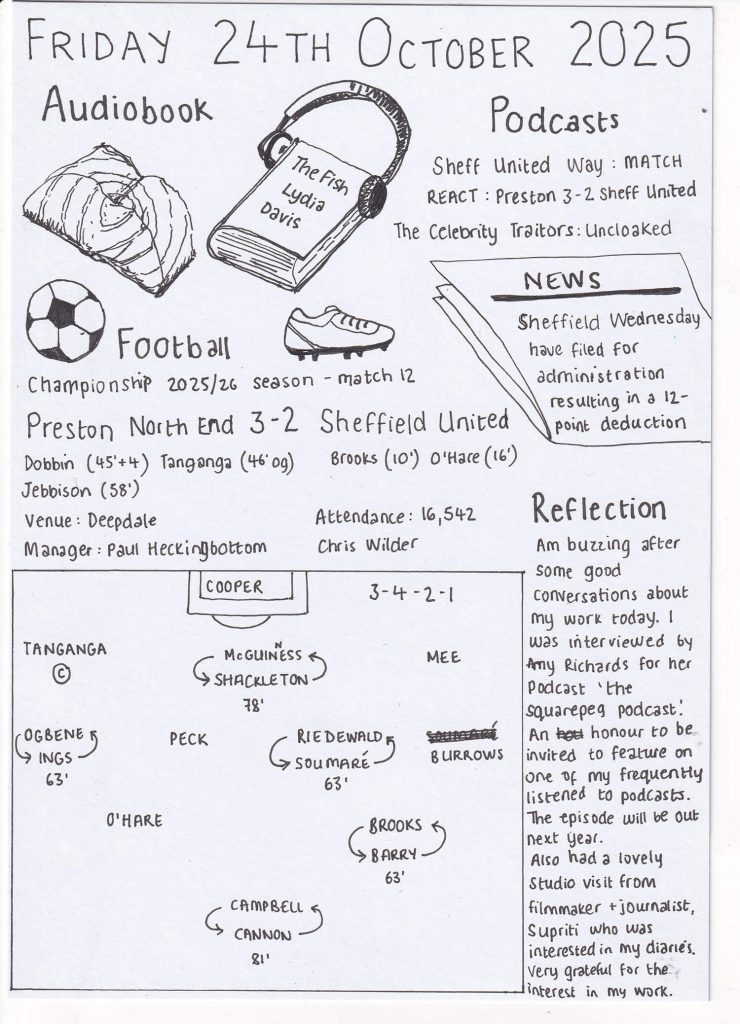 FRIDAY 24TH OCTOBER 2025
Audiobook
The Fish
Lydia
Davis
Podcasts
Sheff United Way : MATCH
REACT : Preston 3-2 Sheff United
The Celebrity Traitors : Uncloaked
NEWS
Sheffield Wednesday
have filed for
administration
resulting in a 12-
point deduction
Football
Championship 2025/26 season - match 12
Preston North End 3-2 Sheffield United
Dobbin (45'+4) Tanganga (46'og) Brooks (10') O'Hare (16')
Jebbison (58')
Venue : Deepdale Attendance : 16,542
Manager : Paul Heckingbottom Chris Wilder
COOPER
3-4-2-1
TANGANGA
C
McGUINNESS
SHACKLETON
78'
MEE
OGBENE
INGS
63'
PECK
RIEDEWALD
SOUMARÉ
63'
SOUMARÉ
BURROWS
O'HARE
BROOKS
BARRY
63'
CAMPBELL
CANNON
81'
Reflection
Am buzzing after
some good
conversations about
my work today. I
was interviewed by
Amy Richards for her
Podcast 'the
squarepeg podcast'.
An honour to be
invited to feature on
one of my frequently
listened to podcasts.
The episode will be out
next year.
Also had a lovely
studio visit from
filmmaker + journalist,
Supriti who was
interested in my diaries.
Very grateful for the
interest in my work.